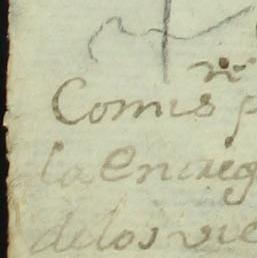 Comis
la entreg
de los vie